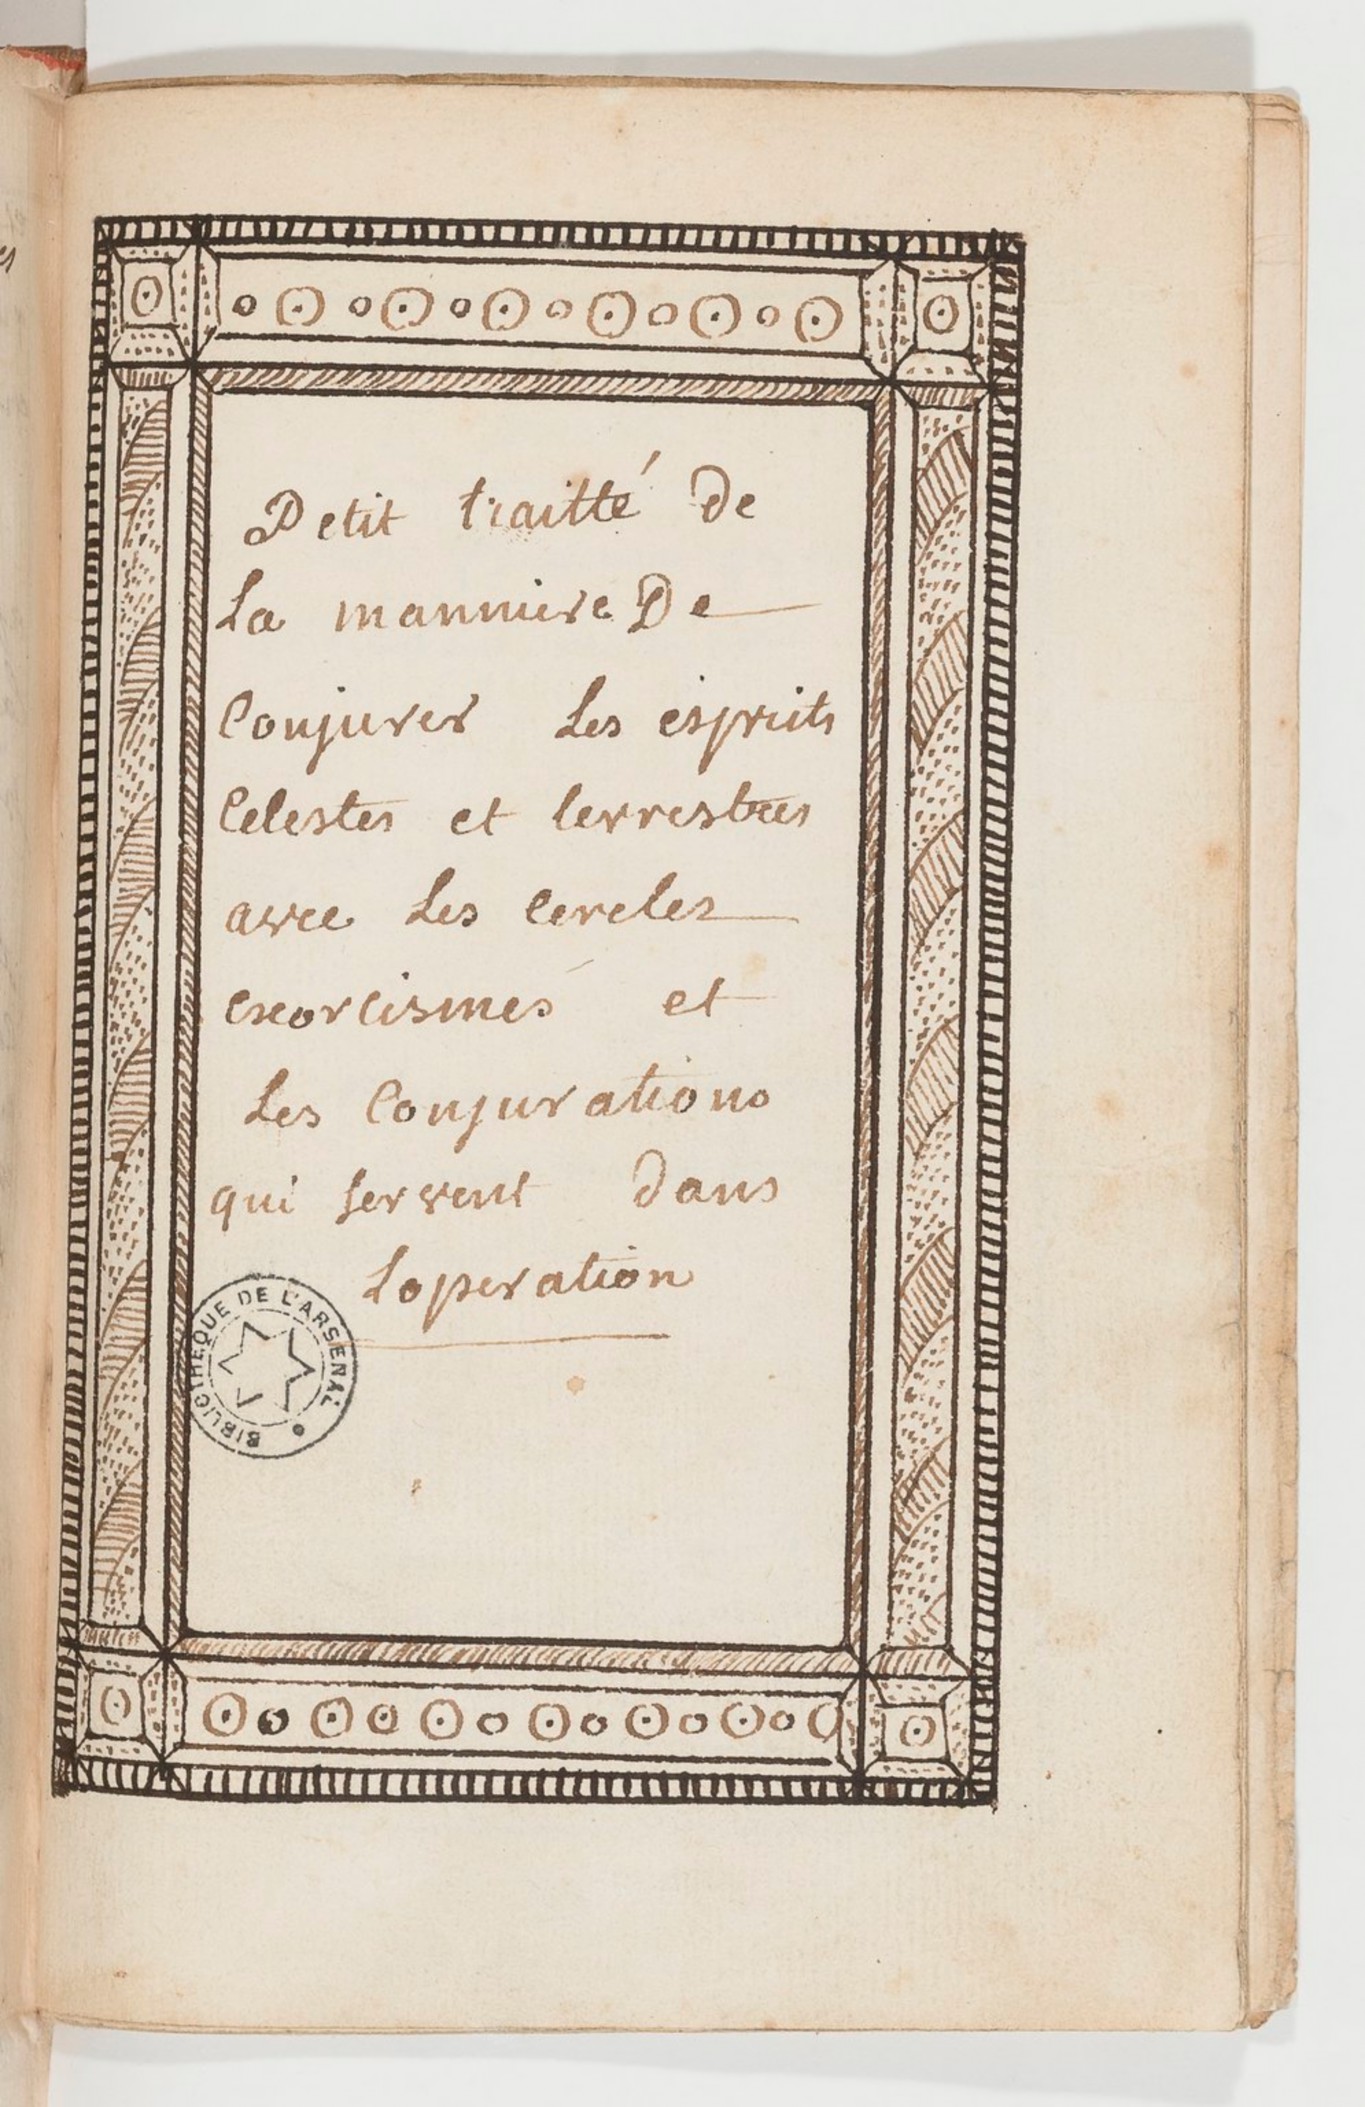 Petit traitté de
La manniere De
Conjurer Les esprits
Celestes et terrestres
avec Les cercles
exorcismes et
Les Conjurations
qui servent dans
Loperation
BIBLIOTHEQUE DE L'ARSENAL